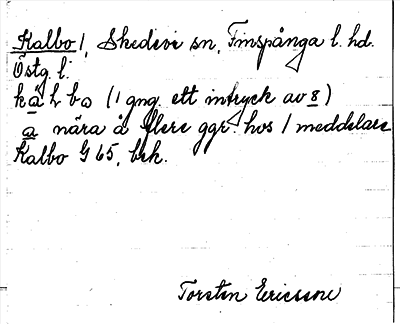 Kalbo 1, Skedevi sn, Finspånga l. hd.
Östg. l.
kạ̊ḷbo (1 gng. ett intryck av 8)
a nära å flere ggr. hos 1 meddelare
Kalbo G 65, bek.
Torsten Ericsson